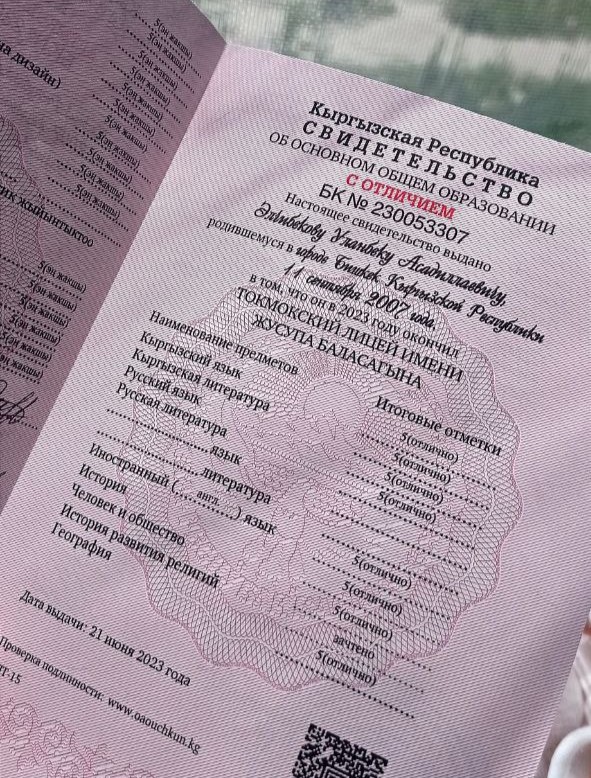 на дизайн)
5(эң жакшы)
5(эң жакшы)
5(эң жакшы)
5(эң жакшы)
5(эң жакшы)
5(эң жакшы)
5(эң жакшы)
5(эң жакшы)
5(эң жакшы)
жыйынтыктоо
5(эң жакшы)
5(эң жакшы)
5(эң жакшы)
5(эң жакшы)
5(эң жакшы)
Кыргызская Республика
СВИДЕТЕЛЬСТВО
ОБ ОСНОВНОМ ОБЩЕМ ОБРАЗОВАНИИ
С ОТЛИЧИЕМ
БК № 230053307
Настоящее свидетельство выдано
Элчибекову Уланбеку Асадиллаевичу,
родившемуся в городе Бишкек Кыргызской Республики
11 сентября 2007 года,
в том, что он в 2023 году окончил
ТОКМОКСКИЙ ЛИЦЕЙ ИМЕНИ
ЖУСУПА БАЛАСАГЫНА
Наименование предметов Итоговые отметки
Кыргызский язык 5(отлично)
Кыргызская литература 5(отлично)
Русский язык 5(отлично)
Русская литература 5(отлично)
.................... язык ....................
.................... литература ....................
Иностранный (...англ...) язык 5(отлично)
История 5(отлично)
Человек и общество 5(отлично)
История развития религий зачтено
География 5(отлично)
Дата выдачи: 21 июня 2023 года
Проверка подлинности: www.oaouchkun.kg
ТГ-15